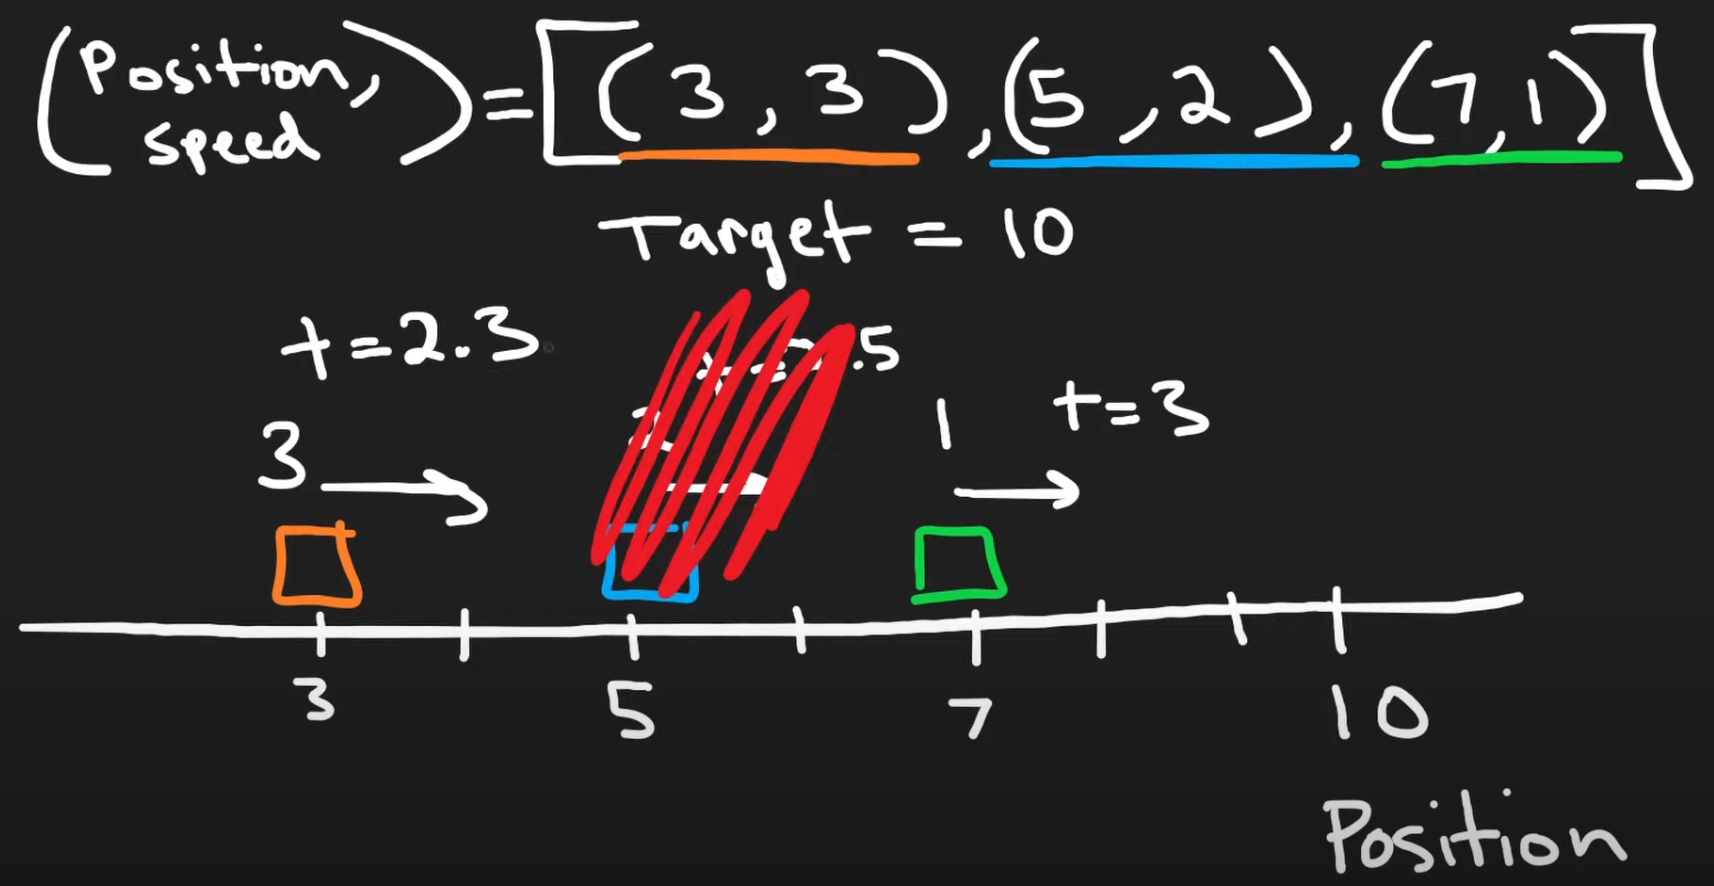 (Position, speed) = [(3, 3), (5, 2), (7, 1)]
Target = 10
t=2.3 .5
t=3
3 1
3 5 7 10
Position